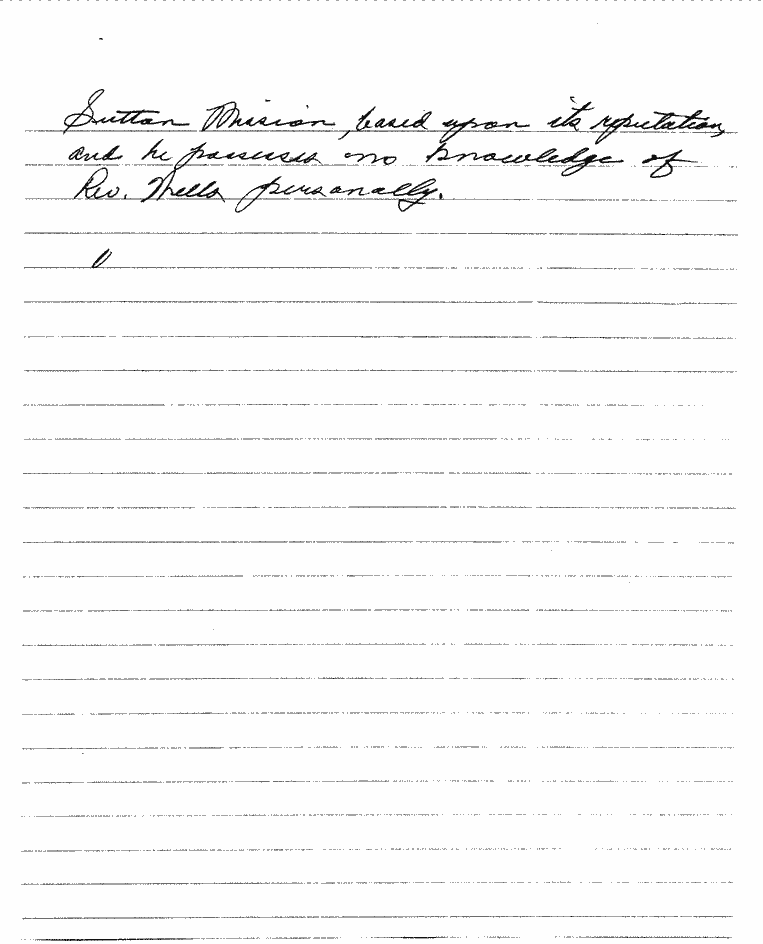 Sutton Mission, based upon its reputation,
and he possesses no knowledge of
Rev. Wells personally.